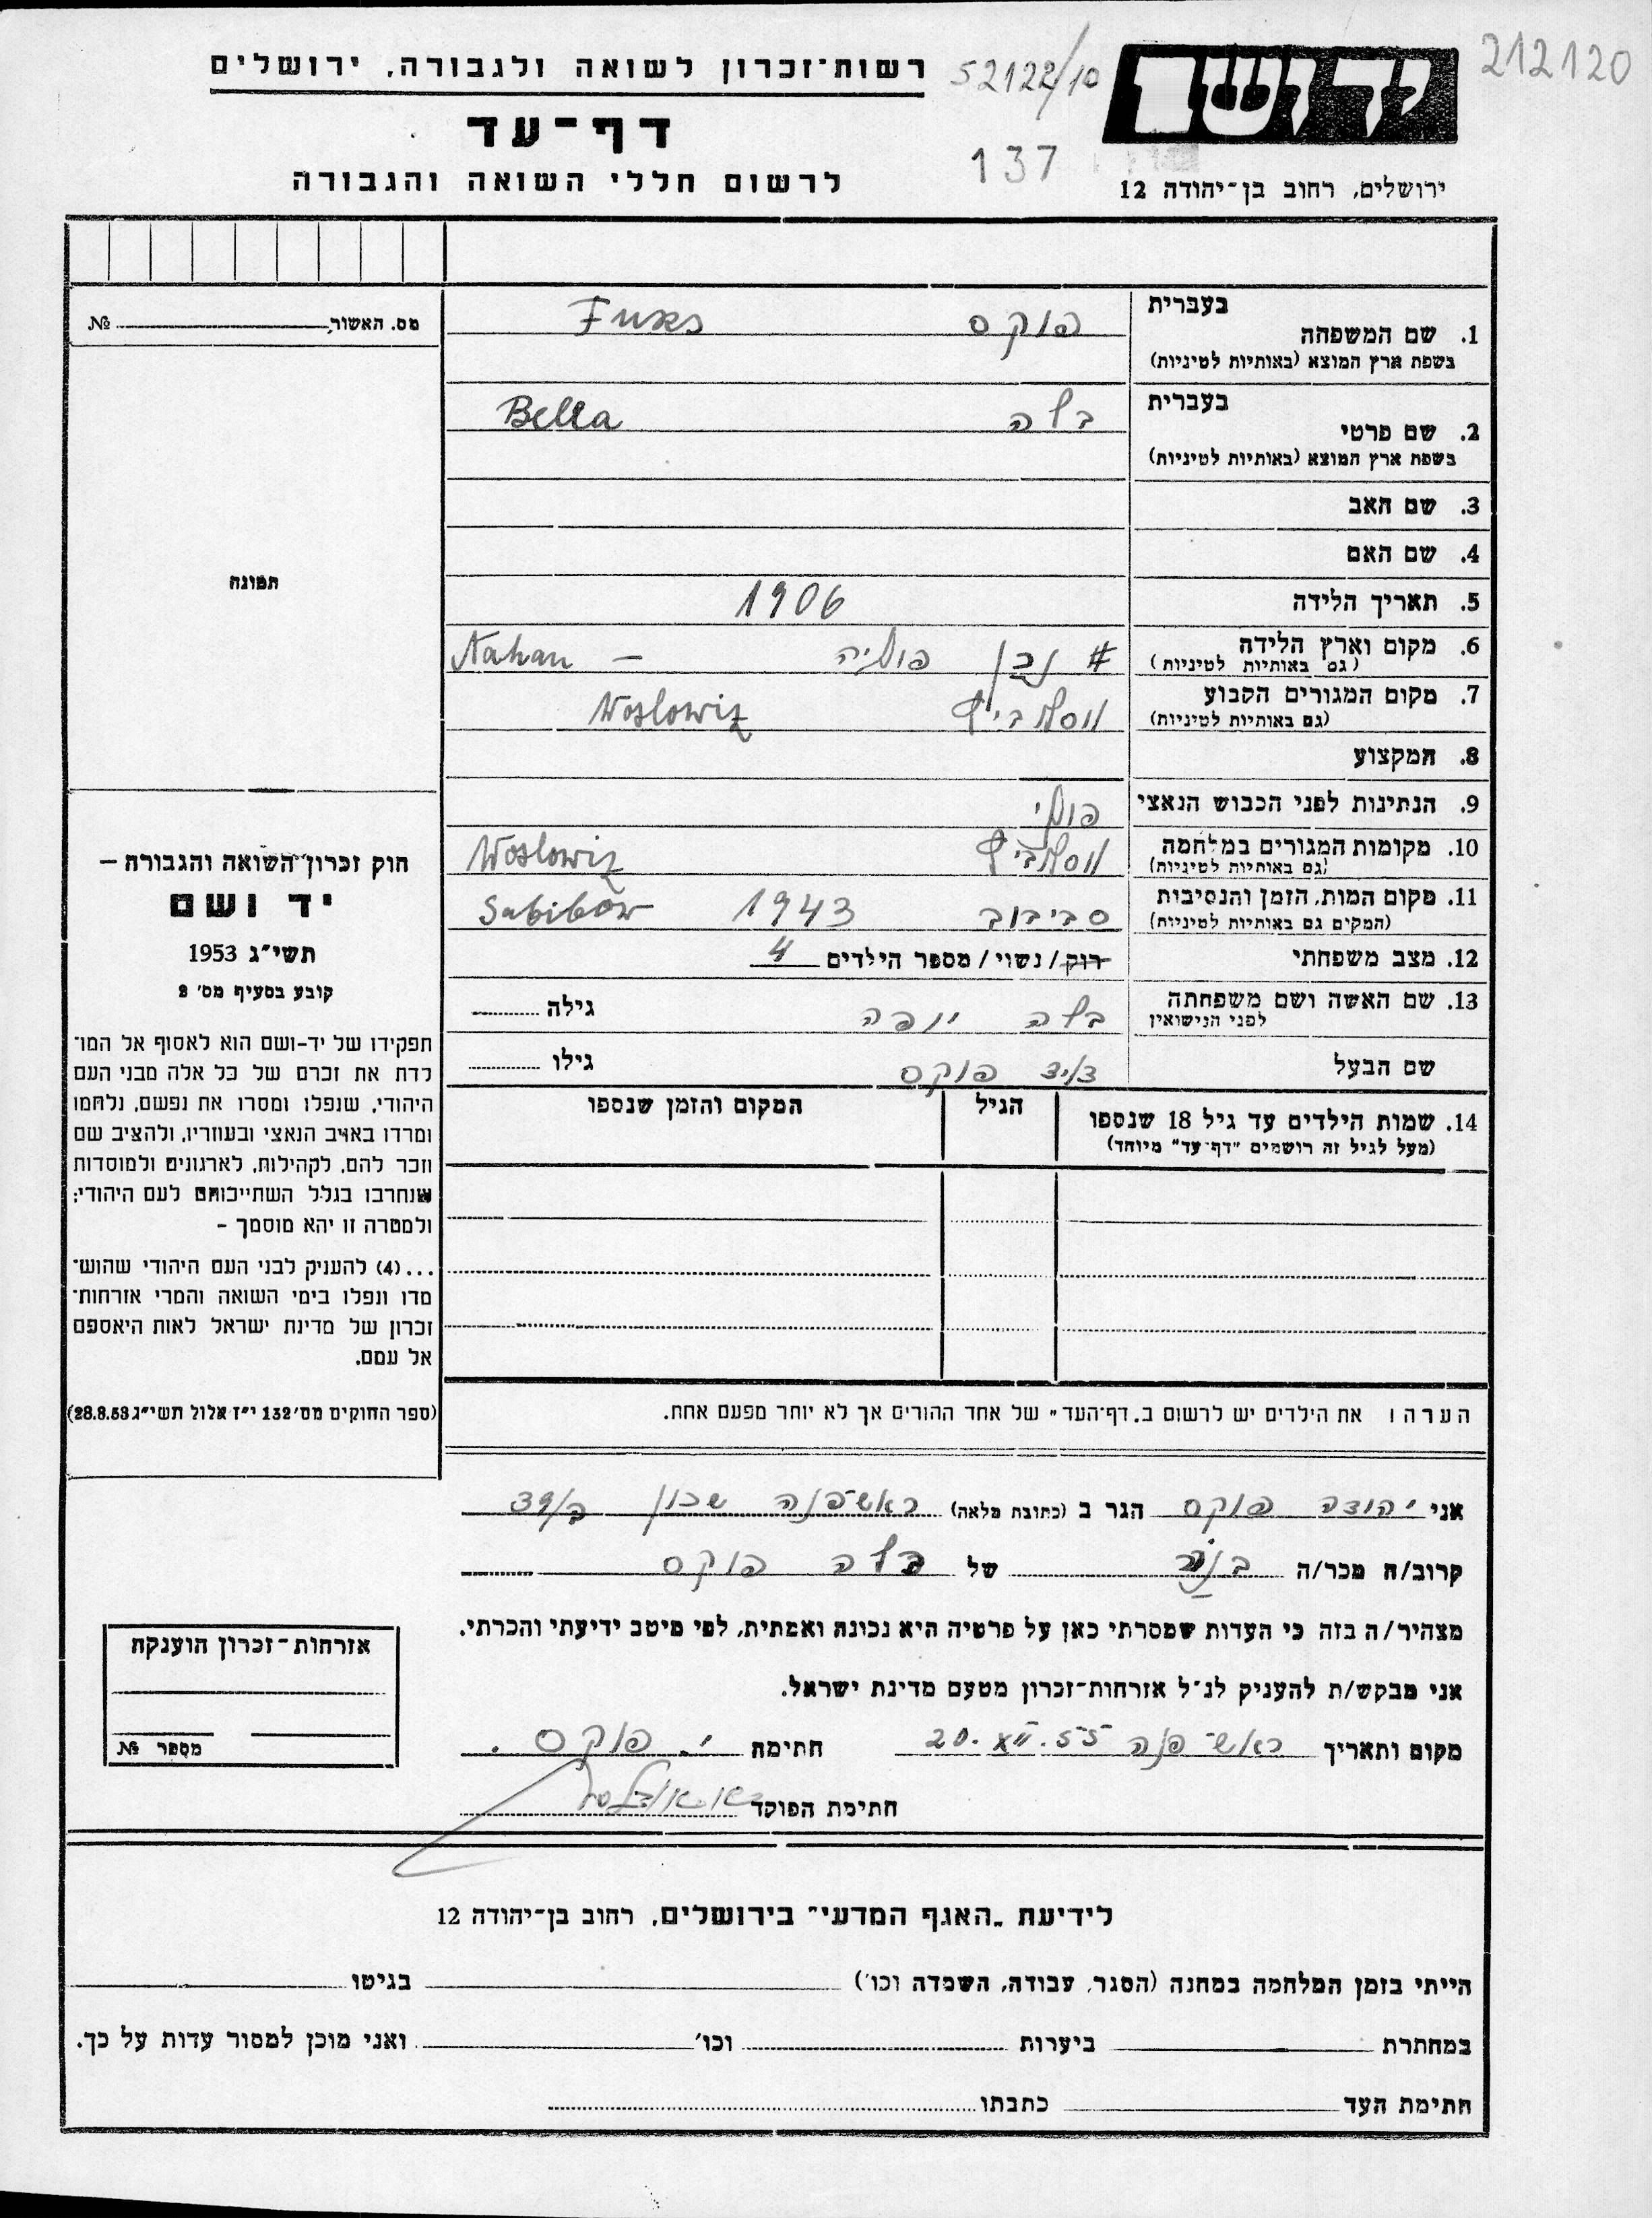 212120
52122/10
137
יד ושם
ירושלים, רחוב בן־יהודה 12
רשות־זכרון לשואה ולגבורה, ירושלים
דף־עד
לרשום חללי השואה והגבורה
מס. האשור, №
תמונה
1. שם המשפחה
בעברית
בשפת ארץ המוצא (באותיות לטיניות)
פוקס Fuxs
2. שם פרטי
בעברית
בשפת ארץ המוצא (באותיות לטיניות)
בלה Bella
3. שם האב
4. שם האם
5. תאריך הלידה 1906
6. מקום וארץ הלידה
(גם באותיות לטיניות)
פוליה –
7. מקום המגורים הקבוע
(גם באותיות לטיניות)
Woslowiz
8. המקצוע
9. הנתינות לפני הכבוש הנאצי פולי
10. מקומות המגורים במלחמה
(גם באותיות לטיניות)
Woslowiz
11. מקום המות, הזמן והנסיבות
(המקים גם באותיות לטיניות)
סביבוב 1943 Sabibow
12. מצב משפחתי רוק / נשוי / מספר הילדים 4
13. שם האשה ושם משפחתה
לפני הנישואין
בלה יופה גילה
שם הבעל דוד פוקס גילו
14. שמות הילדים עד גיל 18 שנספו
(מעל לגיל זה רושמים "דף־עד" מיוחד)
הגיל
המקום והזמן שנספו
חוק זכרון השואה והגבורה –
יד ושם
תשי"ג 1953
קובע בסעיף מס' 2
תפקידו של יד-ושם הוא לאסוף אל המו־
לדת את זכרם של כל אלה מבני העם
היהודי, שנפלו ומסרו את נפשם, נלחמו
ומרדו באויב הנאצי ובעוזריו, ולהציב שם
וזכר להם, לקהילות, לארגונים ולמוסדות
שנחרבו בגלל השתייכותם לעם היהודי;
ולמטרה זו יהא מוסמך –
...(4) להעניק לבני העם היהודי שהוש־
מדו ונפלו בימי השואה והמרי אזרחות־
זכרון של מדינת ישראל לאות היאספם
אל עמם.
(ספר החוקים מס' 132 י"ז אלול תשי"ג 28.8.53)
הערה! את הילדים יש לרשום ב„דף־העד" של אחד ההורים אך לא יותר מפעם אחת.
אני יהודה פוקס הגר ב (כתובת מלאה) ראש־פנה שכון ב/39
קרוב/ה מכר/ה של בלה פוקס
מצהיר/ה בזה כי העדות שמסרתי כאן על פרטיה היא נכונה ואמתית, לפי מיטב ידיעתי והכרתי.
אני מבקש/ת להעניק לנ"ל אזרחות־זכרון מטעם מדינת ישראל.
מקום ותאריך ראש־פנה 20.XII.55 חתימה י. פוקס.
חתימת הפוקד
אזרחות־זכרון הוענקה
מספר №
לידיעת „האגף המדעי" בירושלים, רחוב בן־יהודה 12
הייתי בזמן המלחמה במחנה (הסגר, עבודה, השמדה וכו') בגיטו
במחתרת ביערות וכו' ואני מוכן למסור עדות על כך.
חתימת העד כתבתו